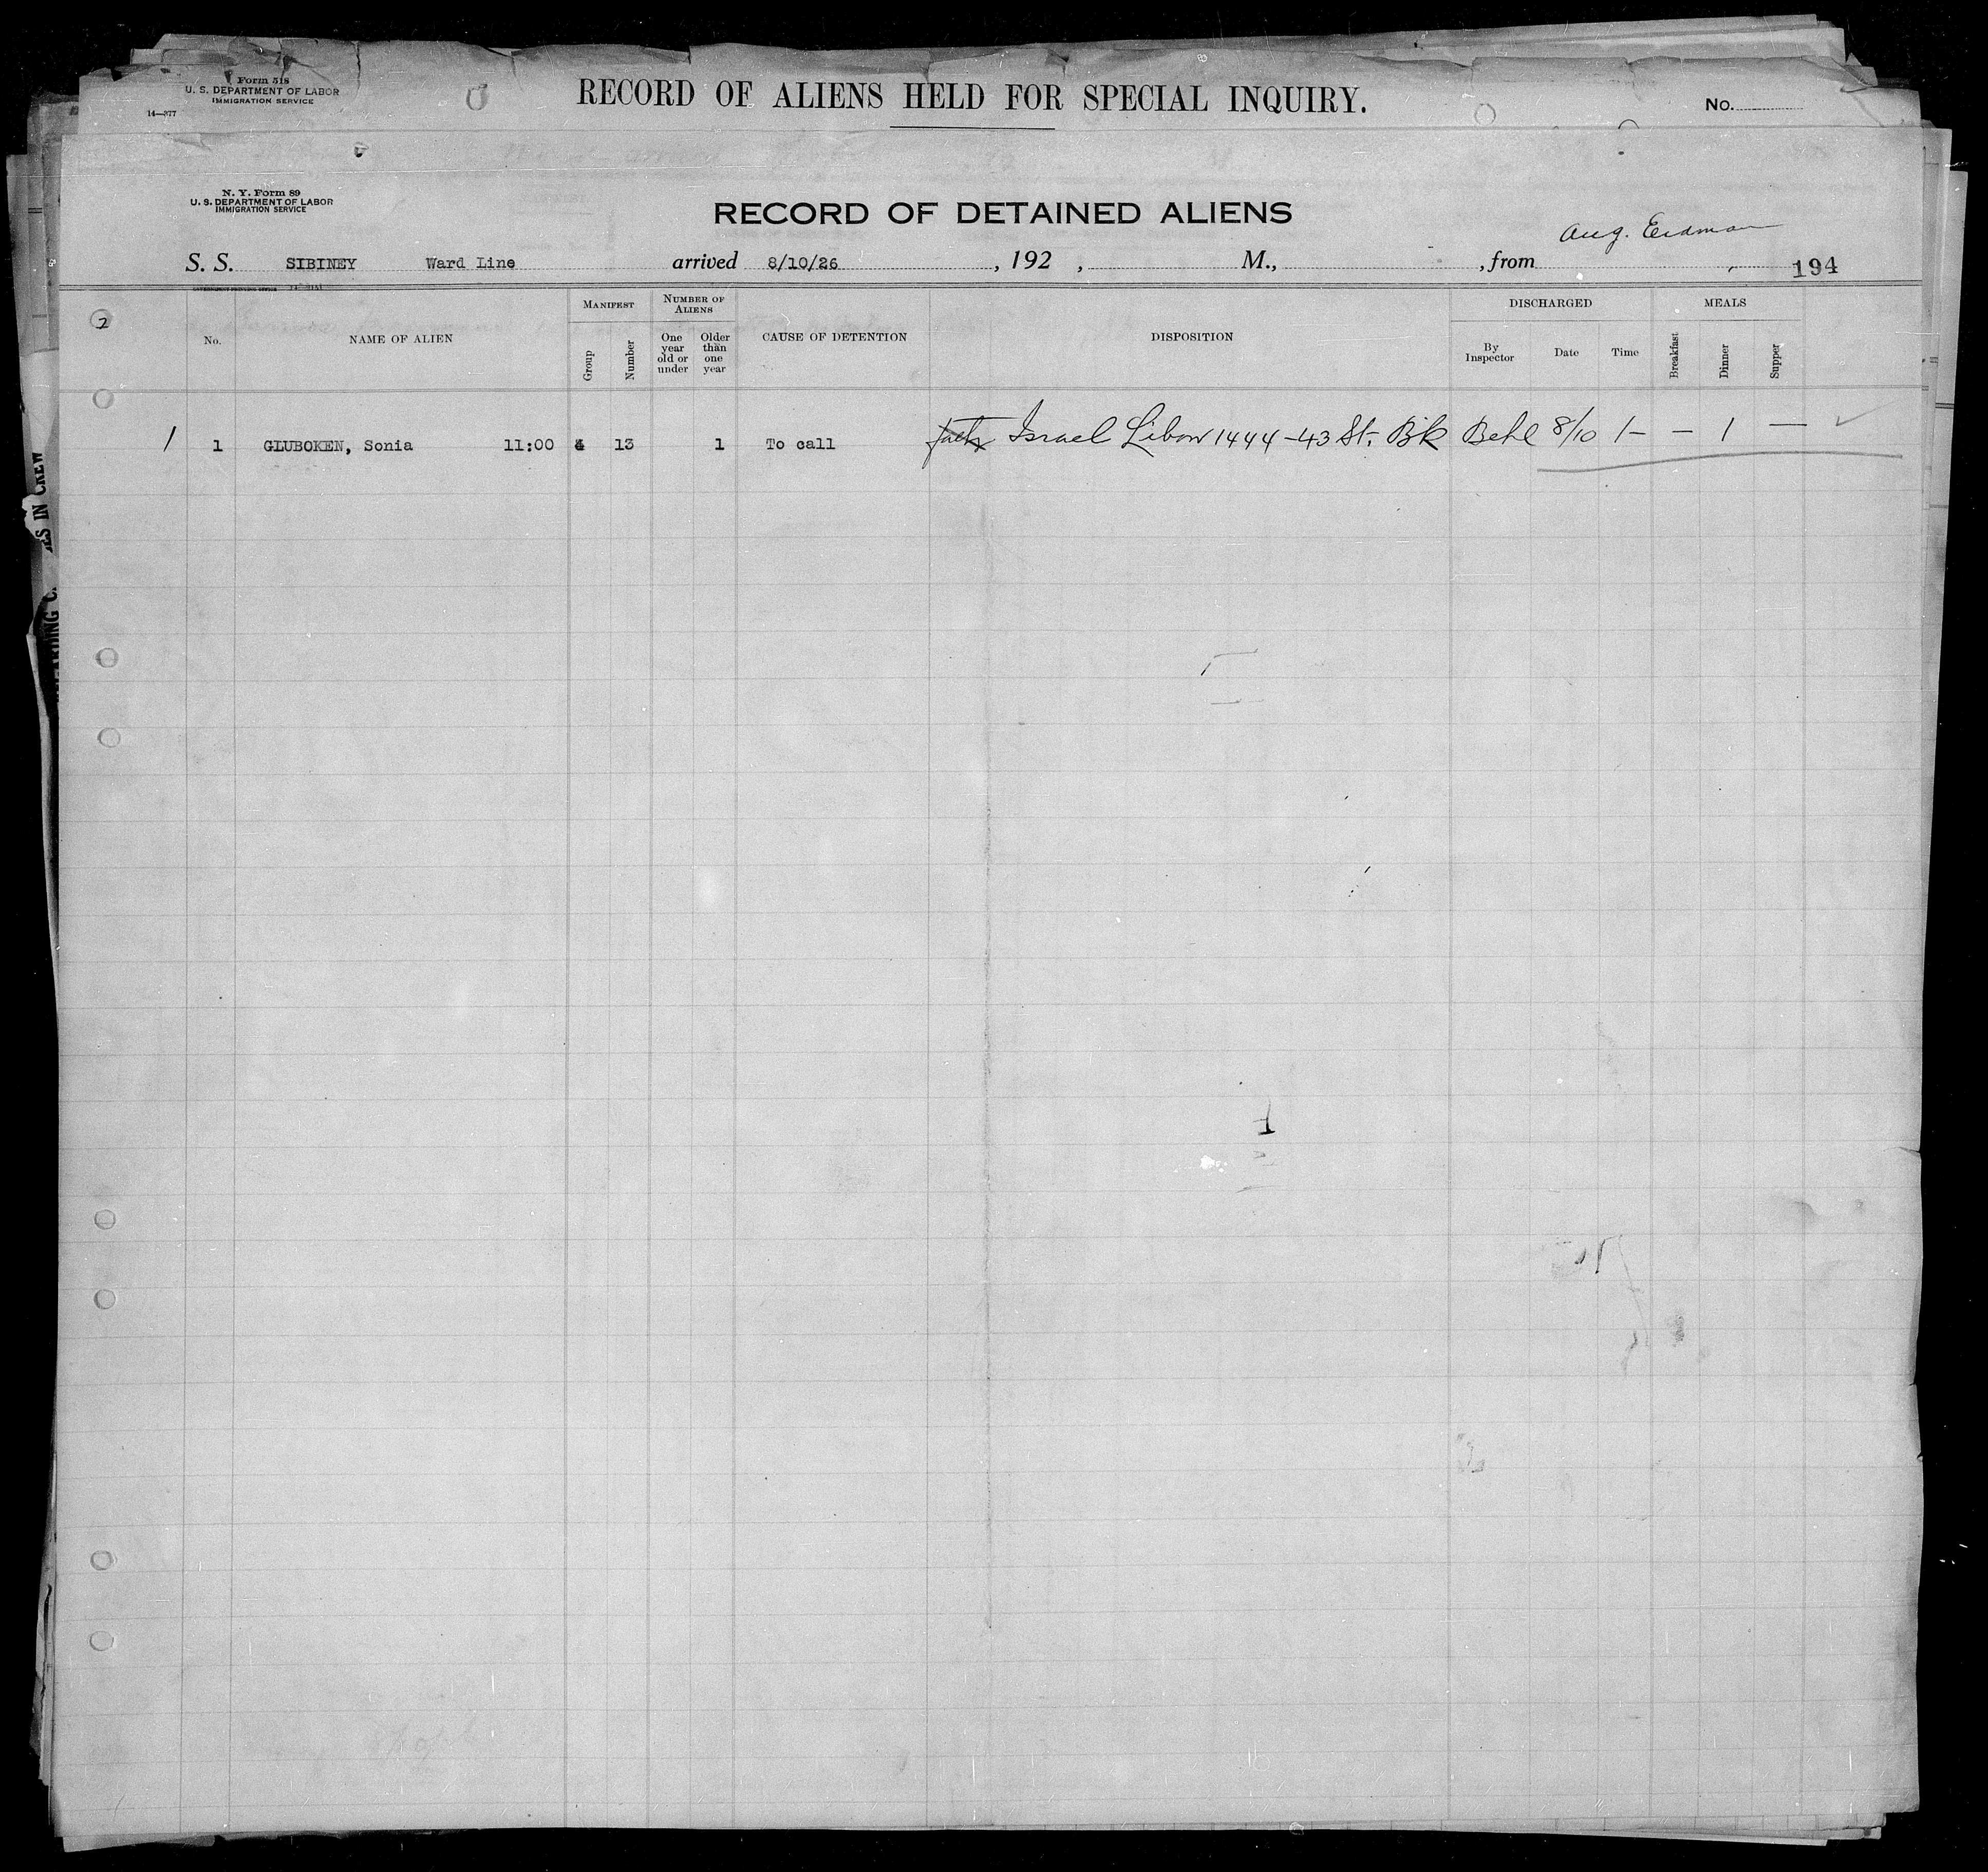 Form 518
U. S. DEPARTMENT OF LABOR
IMMIGRATION SERVICE
14—377
RECORD OF ALIENS HELD FOR SPECIAL INQUIRY.
No.
N. Y. Form 89
U. S. DEPARTMENT OF LABOR
IMMIGRATION SERVICE
RECORD OF DETAINED ALIENS
Aug. Erdman
S. S. SIBINEY Ward Line arrived 8/10/26 , 192 , M., , from
194
GOVERNMENT PRINTING OFFICE
2
No. NAME OF ALIEN MANIFEST Group Number NUMBER OF ALIENS One year old or under Older than one year CAUSE OF DETENTION DISPOSITION DISCHARGED By Inspector Date Time MEALS Breakfast Dinner Supper
1 1 GLUBOKEN, Sonia 11:00 4 13 1 To call Israel Libow 1444-43 St. Bk Behl 8/10 1- — 1 — ✓
ES IN CREW